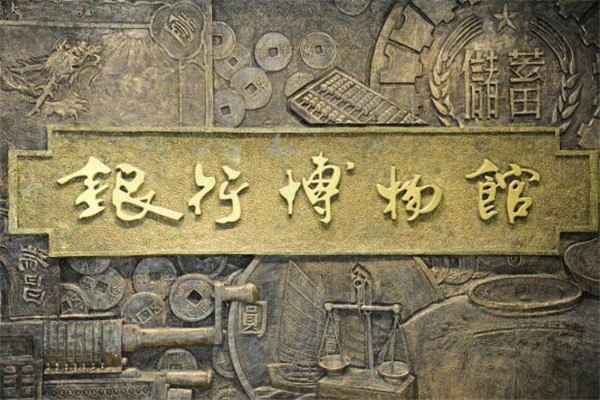 儲蓄
銀行博物館
圓